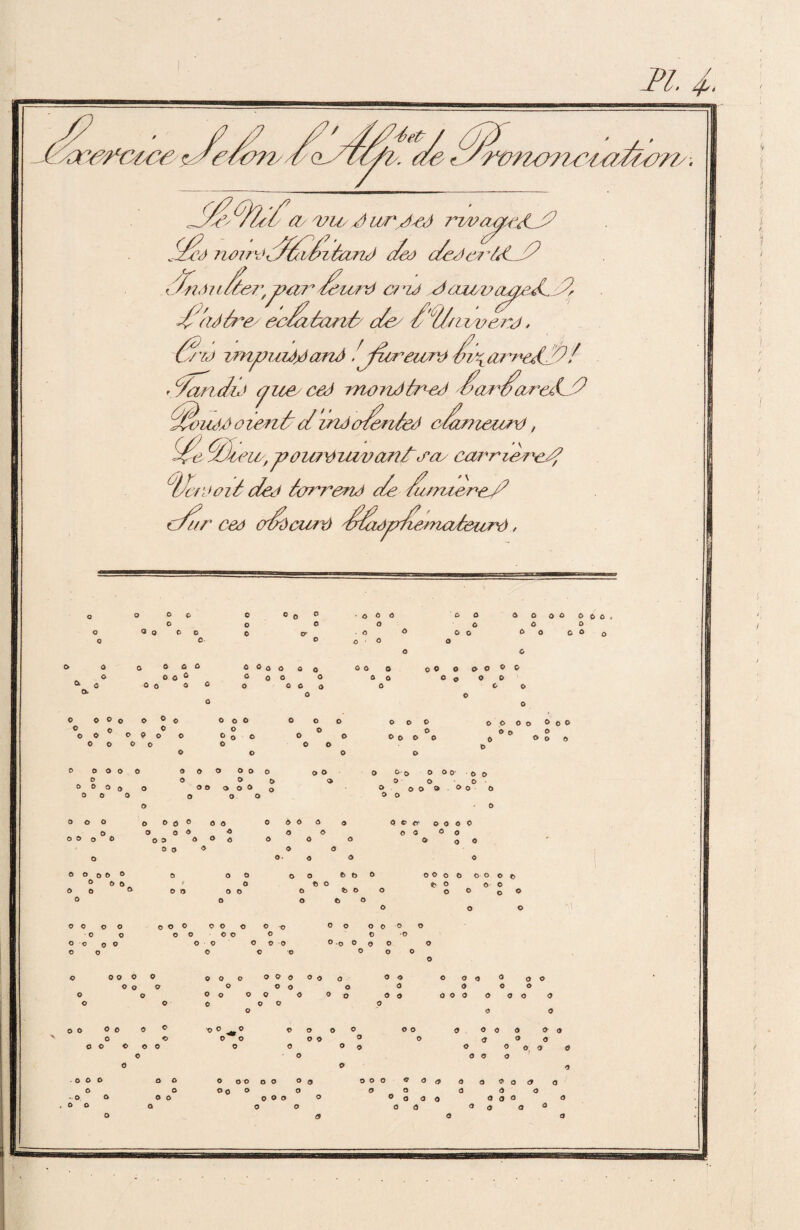 Pl. 4.
Exercice selon l'Alp.bet de Prononciation.
Le Nil a vu sur ses rivages
Les noirs Habitans des deserts
Insulter, par leurs cris sauvages,
L'astre éclatant de l'Univers.
Cris impuissans! fureurs bizarres!
Tandis que ces monstres barbares
Poussoient d'insolentes clameurs,
Le Dieu, poursuivant sa carrière,
Versoit des torrens de lumière
Sur ces obscurs blasphémateurs,